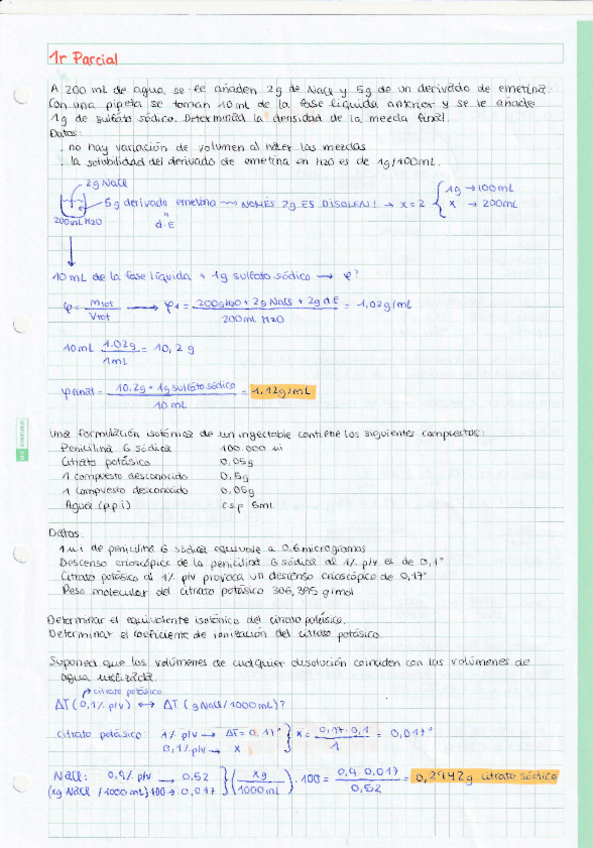 1r Parcial
A 200 mL de agua se le añaden 2g de NaCl y 5g de un derivado de emetina.
Con una pipeta se toman 10 mL de la fase líquida anterior y se le añade
1g de sulfato sódico. Determinad la densidad de la mezcla final.
Datos:
. no hay variación de volumen al hacer las mezclas
. la solubilidad del derivado de emetina en H2O es de 1g/100mL.
2g NaCl
5g derivado emetina → NOMÉS 2g ES DISOLEN! → x=2 { 1g → 100mL
x → 200mL
200mL H2O
d.E
10 mL de la fase líquida + 1g sulfato sódico → φ?
φ = mtot / Vtot → φ1 = 200g H2O + 2g NaCl + 2g d.E / 200 mL H2O = 1.02g/mL
10mL 1.02g / 1mL = 10,2 g
φfinal = 10.2g + 1g sulfato sódico / 10 mL = 1.12g/mL
Una formulación isotónica de un inyectable contiene los siguientes compuestos:
Penicilina G sódica 100.000 ui
Citrato potásico 0,05g
1 compuesto desconocido 0,5g
1 compuesto desconocido 0,05g
Agua (p.p.i) csp 5mL
Datos.
1 u.i de penicilina G sódica equivale a 0.6 microgramos
Descenso crioscópico de la penicilina G sódica al 1% p/v es de 0,1°
Citrato potásico al 1% p/v provoca un descenso crioscópico de 0,17°
Peso molecular del citrato potásico 306,395 g/mol
Determinar el equivalente isotónico del citrato potásico.
Determinar el coeficiente de ionización del citrato potásico.
Suponed que los volúmenes de cualquier disolución coinciden con los volúmenes de
agua utilizada.
citrato potásico
ΔT (0,1% p/v) ↔ ΔT (g NaCl/1000mL)?
Citrato potásico: 1% p/v → ΔT = 0,17° } x = 0,17 · 0,1 / 1 = 0,017°
0,1% p/v → x
NaCl: 0,9% p/v → 0,52 } (xg / 1000mL) · 100 = 0,9 · 0,017 / 0,52 = 0,2942g citrato sódico
(xg NaCl / 1000mL)·100 → 0,017